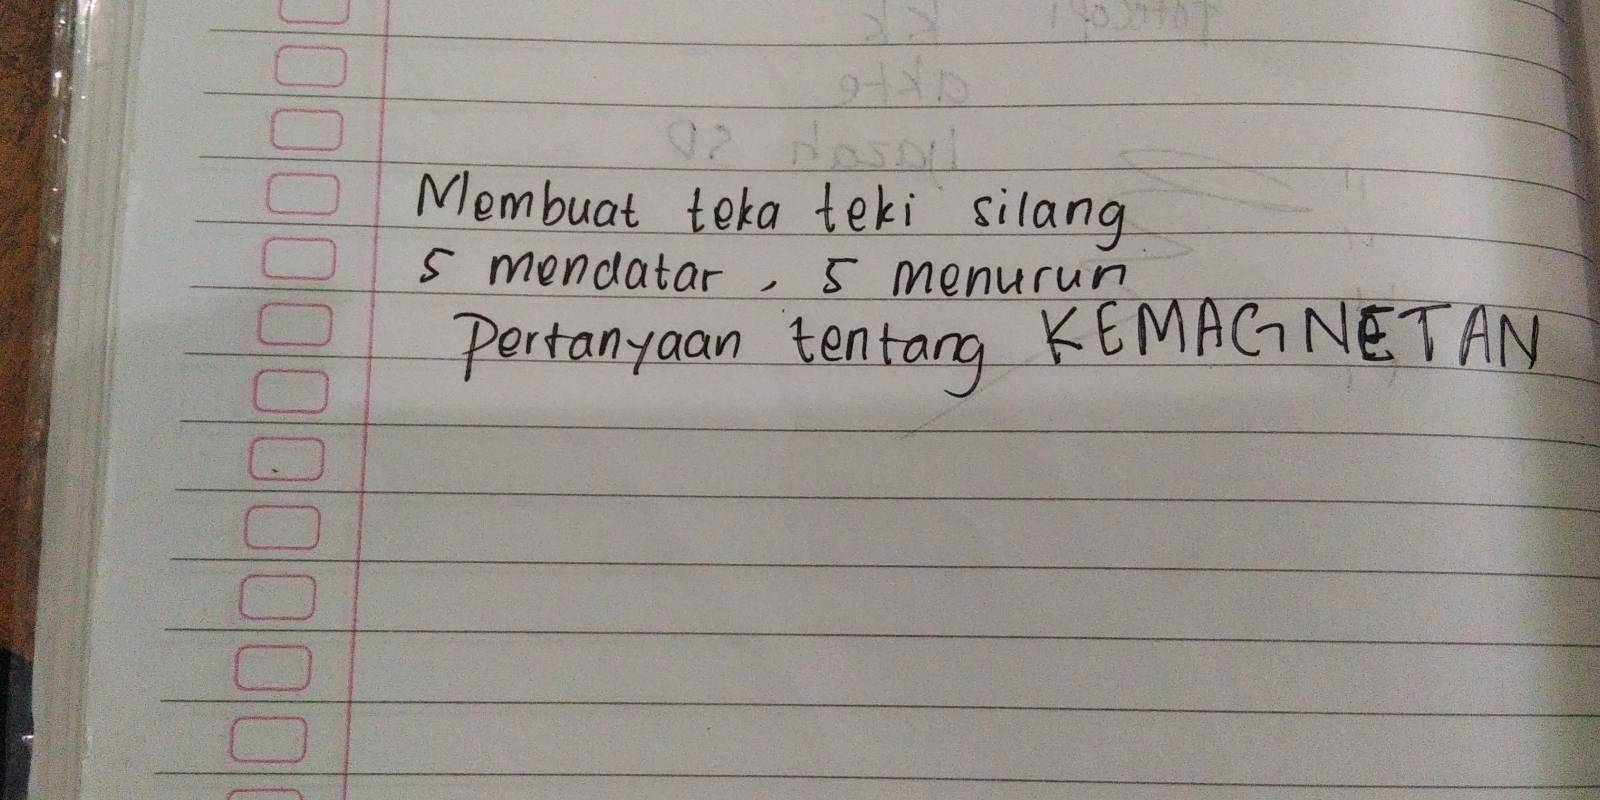 Membuat teka teki silang
5 mendatar, 5 menurun
Pertanyaan tentang KEMAGNETAN